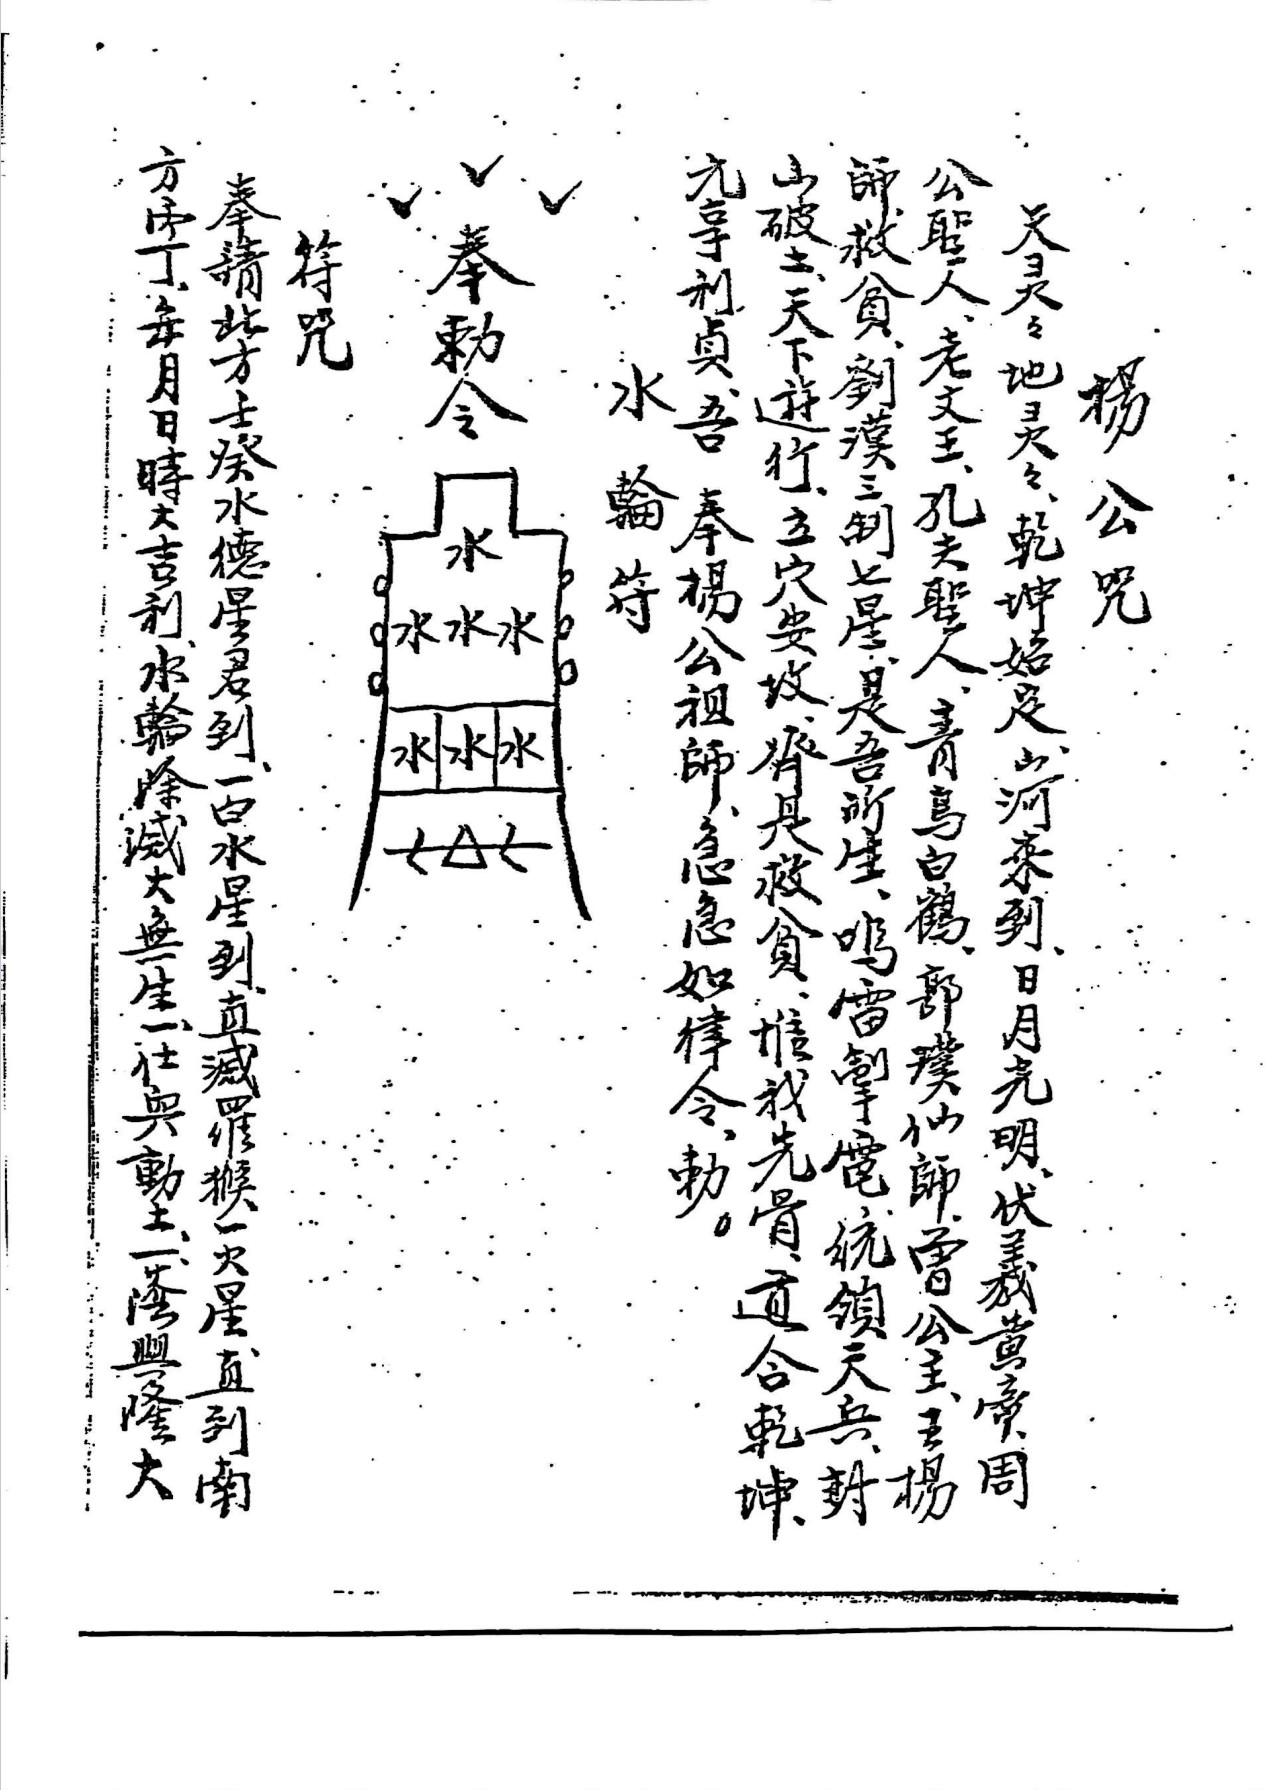 楊公咒
天灵々地灵々、乾坤始足、山河來到、日月光明、伏羲黄帝、周
公聖人、老文王、孔夫聖人、青鳥白鶴、郭璞仙師、曾公主、王楊
師救貧、劉漢三制七星、是吾所座、鳴雷掣電、統領天兵、封
山破土、天下遊行、立穴安坟、齊是救貧、惟我先骨、道合乾坤、
元享利貞、吾 奉楊公祖師、急急如律令、勅。
水輪符
奉勅令
水
水水水
水水水
符咒
奉請北方壬癸水德星君到、一白水星到、直滅羅猴一火星、直到南
方丙丁、年月日時大吉利、水輪除滅大無生、一任與動土、一 興隆大